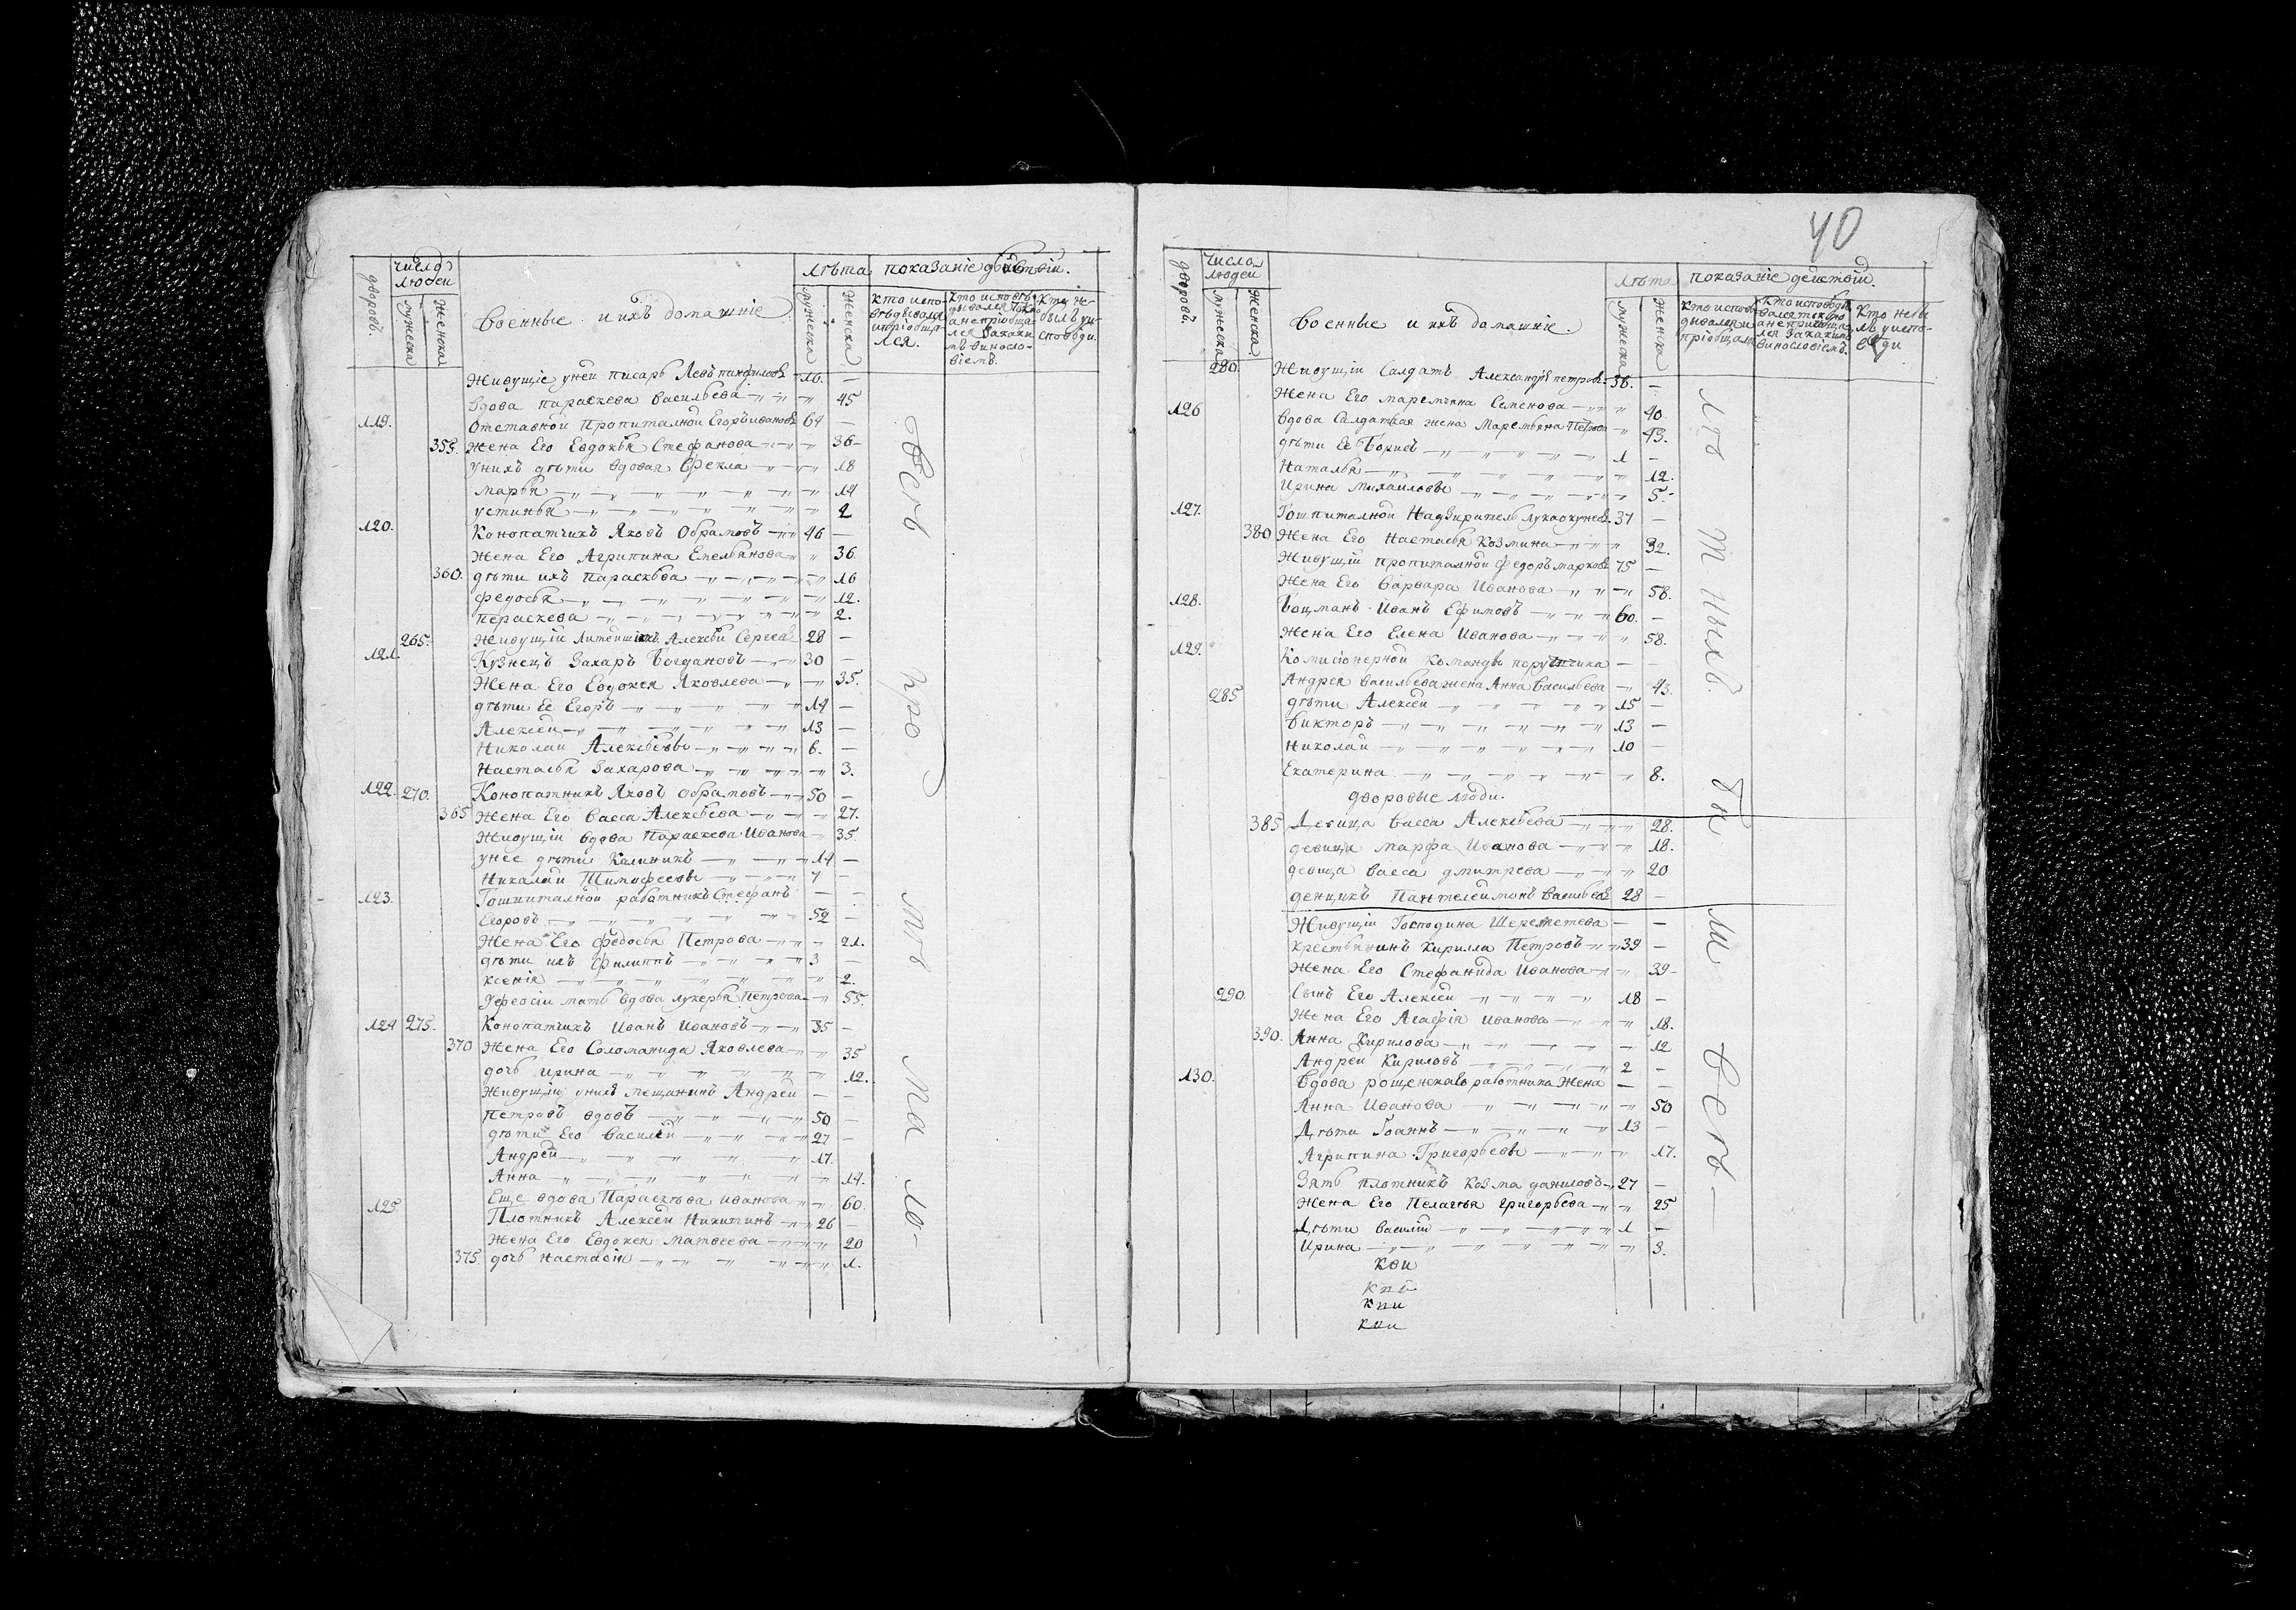 дворовъ.
число людей
мужеска
женска
Военные и ихъ домашніе
лѣта
мужеска
женска
показаніе действій.
кто испо-
вѣдывался
и пріобща-
лся.
кто исповѣ-
дывался токмо
а не пріобща-
лся за каки-
мъ виносло-
віемъ.
кто не
былъ у и-
сповѣди.
Живущіе у ней писарь Левъ панфиловъ 16. —
вдова параскева васильева 45
119. Отставной Пропиталной Егоръ ивановъ 64 —
355. Жена Его Евдокья Стефанова 36
у нихъ дѣти вдовая Ѳекла 18
марья 14
устинья 2
120. Конопатчикъ Яковъ Обрамовъ 46 —
Жена Его Агрипина Емельянова 36.
360. дѣти ихъ Параскѣва 16
федосья 12.
параскева 2.
265. Живущій Литейщикъ Алексѣй Сергеевъ 28 —
121. Кузнецъ Захаръ Богдановъ 30 —
Жена Его Евдокея Яковлева 35.
дѣти ее Егоръ 14 —
Алексей 13 —
Николай Алексѣевы 6. —
Настасья Захарова 3.
122. 270. Конопатчикъ Яковъ Обрамовъ 50 —
365 Жена Его Васса Алексѣева 27.
Живущій вдова Параскева Иванова 35.
у нее дѣти Калиникъ 14 —
Николай Тимофеевы 7 —
123. Гошпиталной работникъ Стефанъ — —
Егоровъ 52 —
Жена Его федосья Петрова 21.
дѣти ихъ Филиппъ 3 —
ксенія 2.
У федосіи мать вдова лукерья Петрова 55.
124 275. Конопатчикъ Иванъ Ивановъ 35 —
370 Жена Его Соломанида Яковлева 35
дочь ирина 12.
Живущій у нихъ мещанинъ Андрей — —
Петровъ вдовъ 50 —
дѣти Его Василей 27 —
Андрей 17.
Анна 14.
Еще вдова Параскѣва иванова 60.
125 Плотникъ Алексей Никитинъ 26 —
Жена Его Евдокея Матвеева 20
375. дочь Настасія 1.
Всѣ
про
тѣ
ма
ло
40
дворовъ.
число людей
мужеска
женска
Военные и ихъ домашніе.
лѣта
мужеска
женска
показаніе действій.
кто исповѣ
дывался и
пріобщался
кто исповѣды
вался токмо
а не пріобща
лся за какимъ
винословіемъ.
кто не бы
лъ у испо-
вѣди
280. Живущій Салдатъ Александръ петровъ 38. —
Жена Его маремьяна Семенова 40.
126 вдова Салдатская жена Маремьяна Петрова 43.
дѣти Ее Борисъ 1 —
Наталья 12.
Ирина Михайловы 5.
127. Гошпиталной Надзиратель лука окуневъ 37 —
380 Жена Его Настасья Козмина 32.
Живущій пропиталной федоръ марковъ 75 —
Жена Его Варвара Иванова 58.
128. Боцманъ Иванъ Ефимовъ 60. —
Жена Его Елена Иванова 58.
129. Комисіонерной команды поручика — —
Андрея Васильева жена Анна Васильева 43.
285 дѣти Алексей 15 —
Викторъ 13 —
Николай 10 —
Екатерина 8.
дворовые люди.
385 Девица Васса Алексѣева 28.
девица Марфа Иванова 18.
девица Васса дмитрева 20
денщикъ Пантелеймонъ Васильевъ 28 —
Живущій Господина Шереметева — —
крестьянинъ Кирилла Петровъ 39 —
Жена Его Стефанида Иванова 39
290. Сынъ Его Алексей 18 —
Жена Его Агафія Иванова 18.
390. Анна Кирилова 12
Андрей Кириловъ 2 —
130. Вдова рощенскаго работника Жена — —
Анна Иванова 50
Дѣти Іоаннъ 13 —
Агрипина Григорьевы 17.
Зять плотникъ Козма даниловъ 27 —
Жена Его Пелагея Григорьева 25
Дѣти василій 1 —
Ирина 3.
лѣ
тныхъ.
бы
ли
всѣ